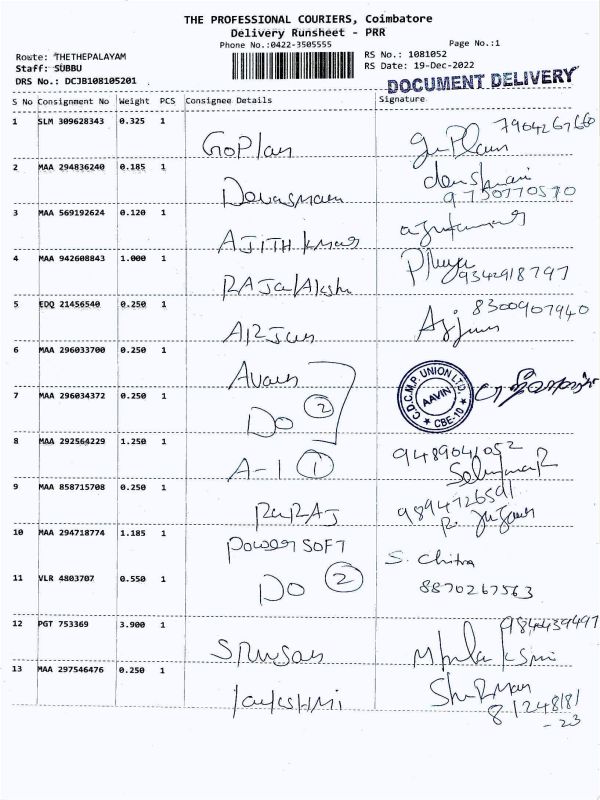 THE PROFESSIONAL COURIERS, Coimbatore
Delivery Runsheet - PRR
Phone No.:0422-3505555
Page No.:1
Route: THETHEPALAYAM
RS No.: 1081052
Staff: SUBBU
RS Date: 19-Dec-2022
DRS No.: DCJB108105201
DOCUMENT DELIVERY
S No Consignment No Weight PCS Consignee Details Signature
1 SLM 309628343 0.325 1 GoPlan 7904267660
2 MAA 294836240 0.185 1 9750770570
3 MAA 569192624 0.120 1 AJITH kmar
4 MAA 942608843 1.000 1 9342918797
5 EDQ 21456540 0.250 1 ARJun Arjun 8300907940
6 MAA 296033700 0.250 1 Avain
C.D.C.M.P. UNION LTD. AAVIN CBE-10
7 MAA 296034372 0.250 1 DO 2
8 MAA 292564229 1.250 1 A-1 1 9489041052
9 MAA 858715708 0.250 1 9894726591
10 MAA 294718774 1.185 1 Power SOFT S. Chitra
11 VLR 4803707 0.550 1 DO 2 8870267563
12 PGT 753369 3.900 1 984439497
13 MAA 297546476 0.250 1 81248181
-23